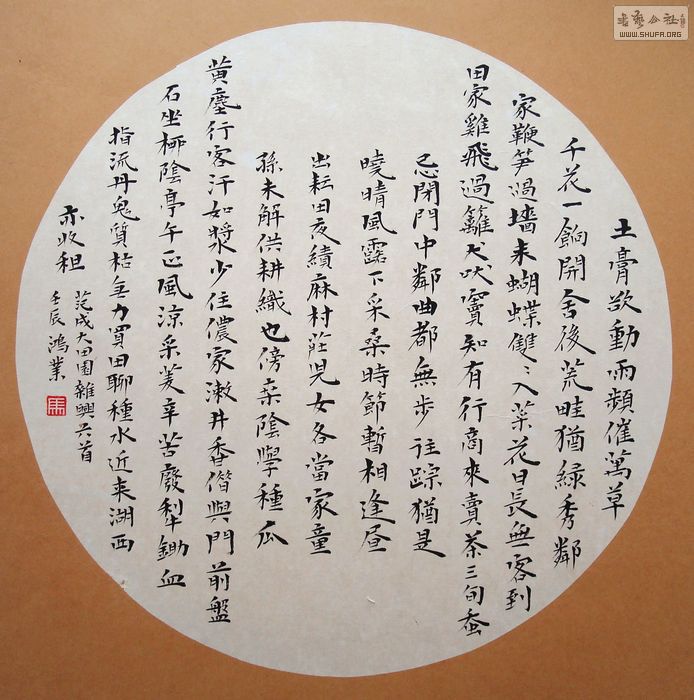 土膏欲動雨頻催萬草
千花一餉開舍後荒畦猶綠秀鄰
家鞭笋過墻來蝴蝶雙〻入菜花日長無客到
田家雞飛過籬犬吠竇知有行商來賣茶三旬蚕
忌閉門中鄰曲都無步往踪猶是
曉晴風露下采桑時節暫相逢晝
出耘田夜績麻村莊兒女各當家童
孫未解供耕織也傍桑陰學種瓜
黃塵行客汗如漿少住儂家漱井香借與門前盤
石坐柳陰亭午正風涼采菱辛苦廢犁鋤血
指流丹鬼質枯無力買田聊種水近來湖西
亦收租
范成大田園雜興六首
壬辰鴻業
WWW.SHUFA.ORG